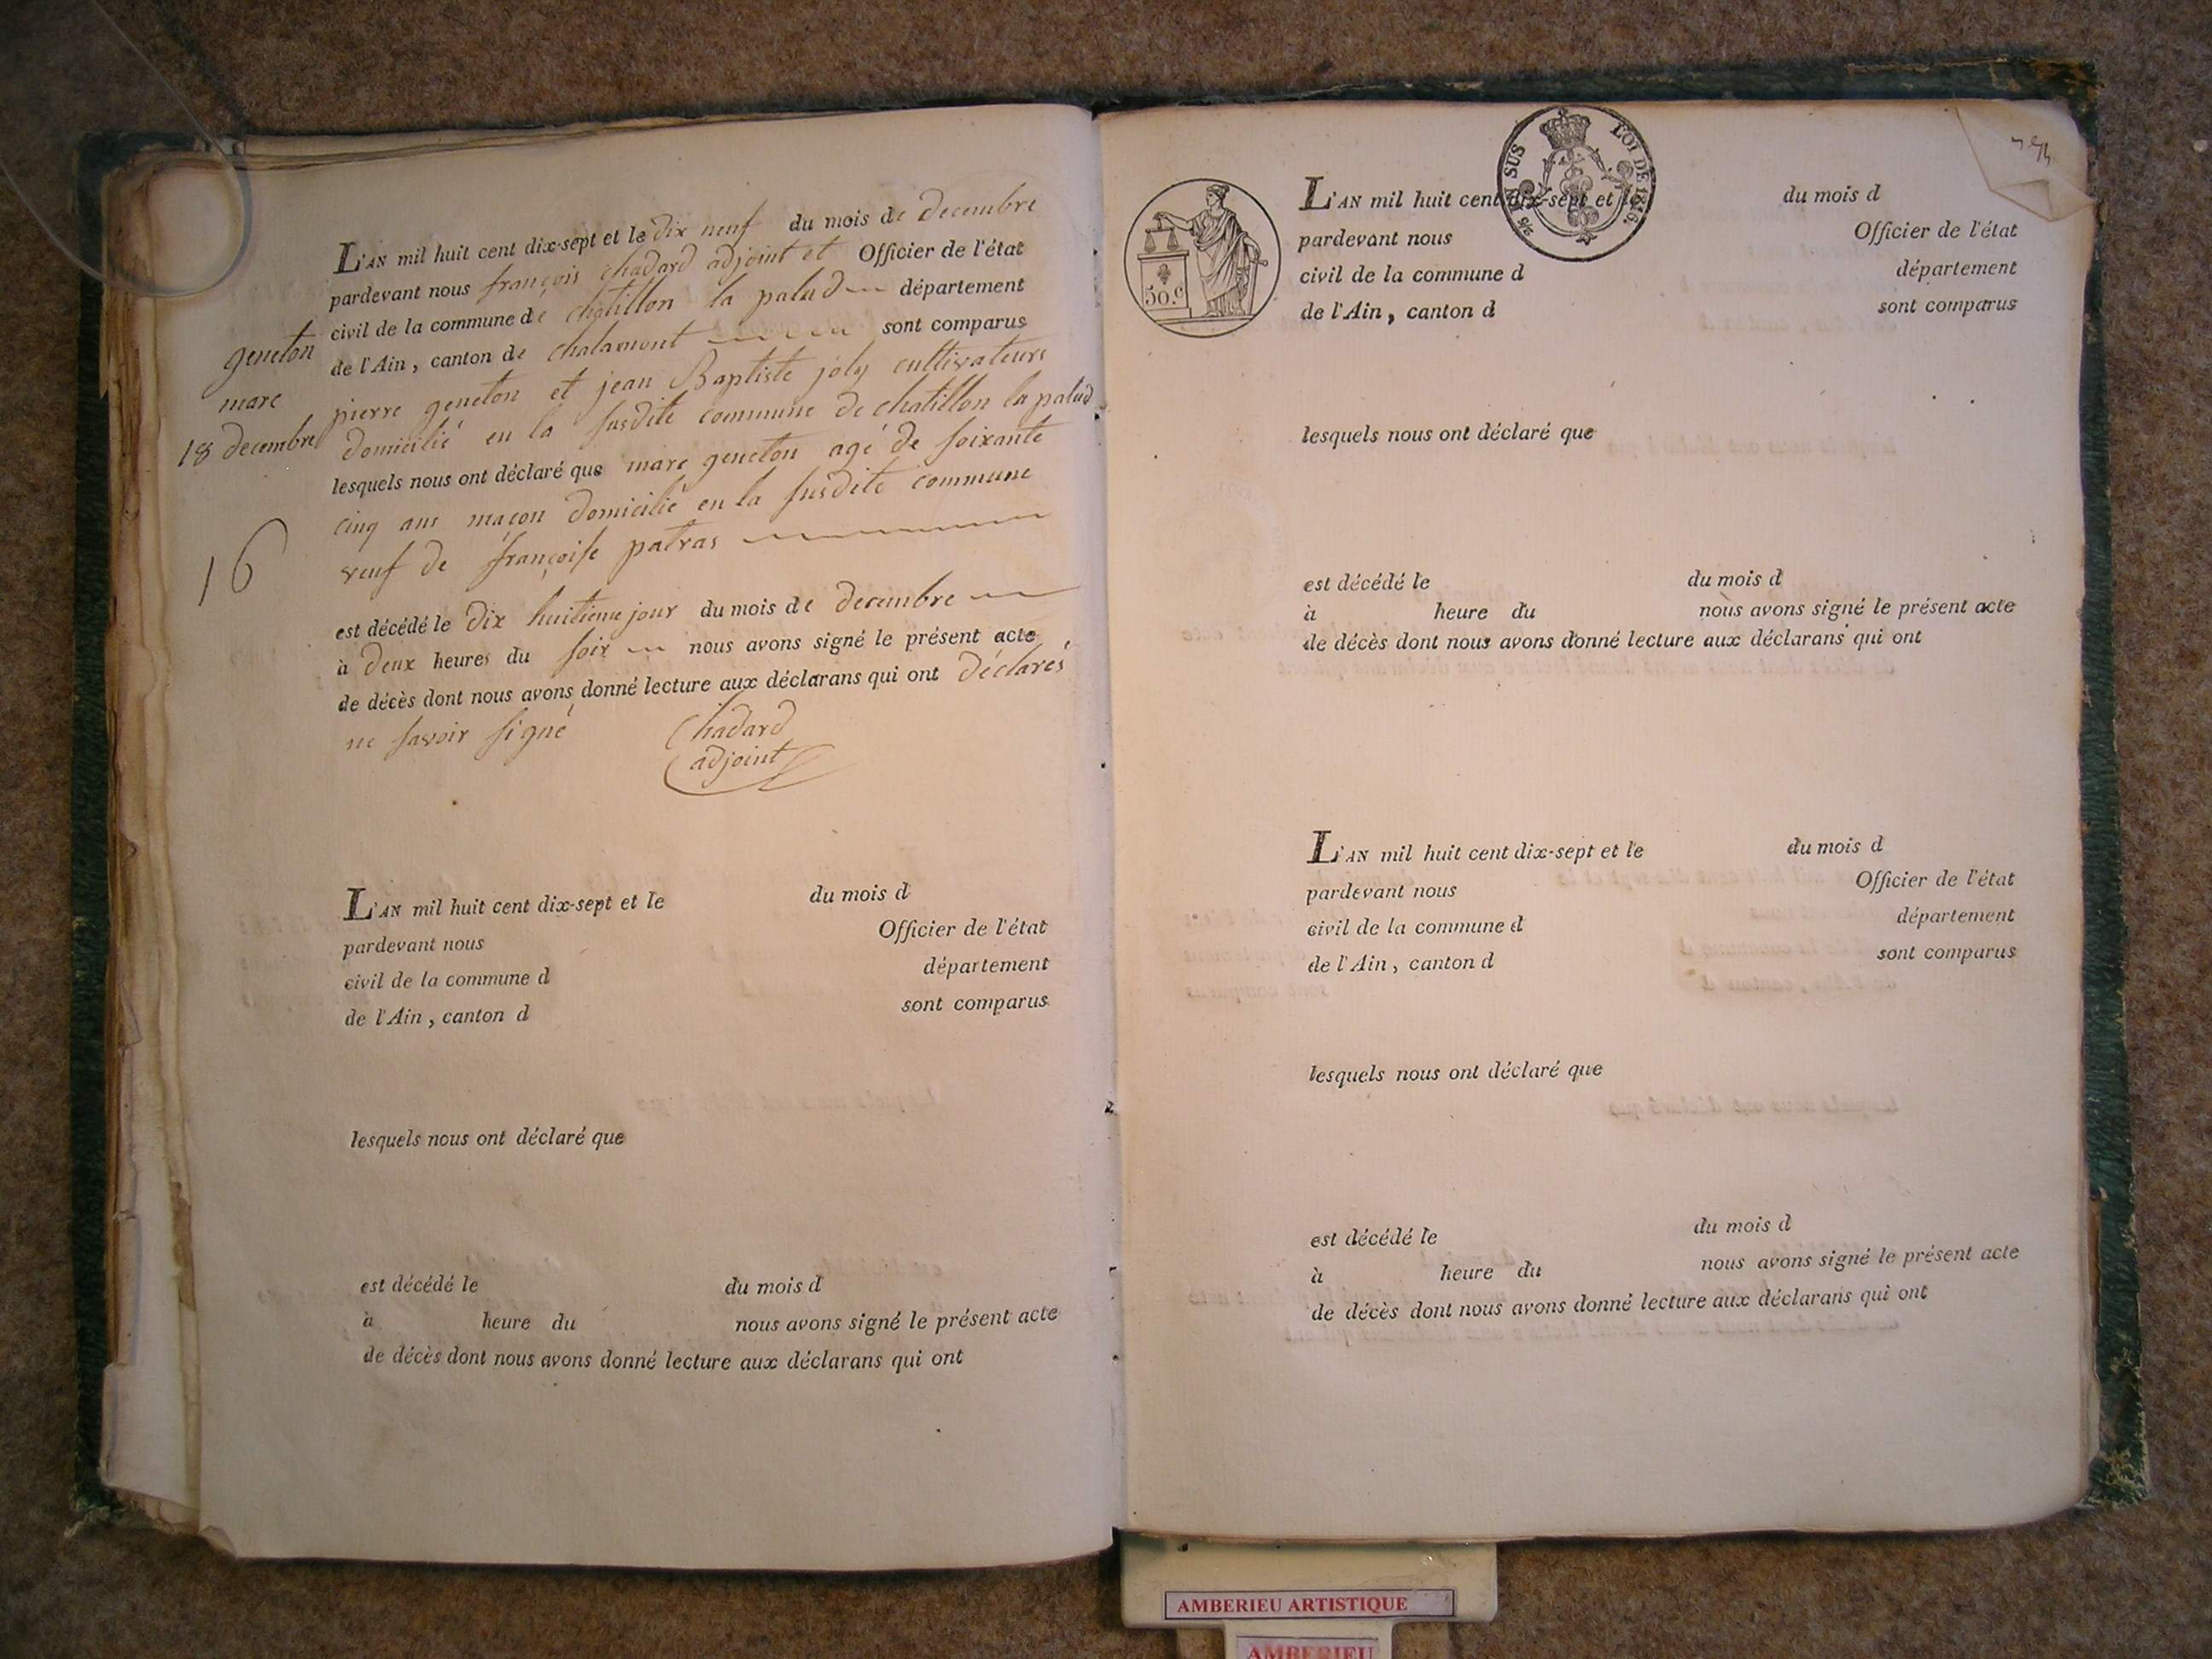 L'AN mil huit cent dix-sept et le dix neuf du mois de decembre
pardevant nous françois chadard adjoint et Officier de l'état
civil de la commune de chatillon la palud département
de l'Ain, canton de chalamont sont comparus
pierre geneton et jean Baptiste joly cultivateurs
domicilié en la susdite commune de chatillon la palud
lesquels nous ont déclaré que marc geneton agé de soixante
cinq ans maçon domicilié en la susdite commune
veuf de françoise patras
est décédé le dix huitieme jour du mois de decembre
à deux heures du soir nous avons signé le présent acte
de décès dont nous avons donné lecture aux déclarans qui ont déclarés
ne savoir signé
Chadard
adjoint
geneton
marc
18 decembre
16
L'AN mil huit cent dix-sept et le du mois d
pardevant nous Officier de l'état
civil de la commune d département
de l'Ain, canton d sont comparus
lesquels nous ont déclaré que
est décédé le du mois d
à heure du nous avons signé le présent acte
de décès dont nous avons donné lecture aux déclarans qui ont
50.c
EN SUS
LOI DE 1816.
L'AN mil huit cent dix-sept et le du mois d
pardevant nous Officier de l'état
civil de la commune d département
de l'Ain, canton d sont comparus
lesquels nous ont déclaré que
est décédé le du mois d
à heure du nous avons signé le présent acte
de décès dont nous avons donné lecture aux déclarans qui ont
L'AN mil huit cent dix-sept et le du mois d
pardevant nous Officier de l'état
civil de la commune d département
de l'Ain, canton d sont comparus
lesquels nous ont déclaré que
est décédé le du mois d
à heure du nous avons signé le présent acte
de décès dont nous avons donné lecture aux déclarans qui ont
AMBERIEU ARTISTIQUE
AMBERIEU